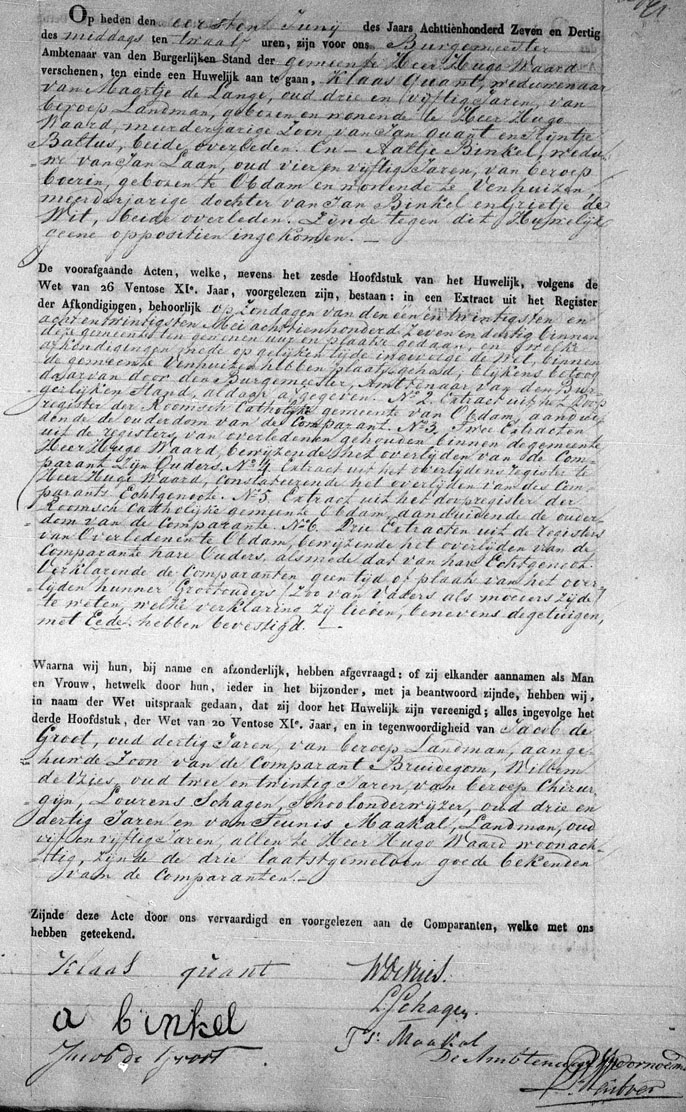 Op heden den eersten Junij des Jaars Achttienhonderd Zeven en Dertig
des middags ten twaalf uren, zijn voor ons Burgemeester
Ambtenaar van den Burgerlijken Stand der gemeente Heer Hugo Waard
verschenen, ten einde een Huwelijk aan te gaan, Klaas Quant, weduwenaar
van Maartje de Lange, oud drie en vijftig Jaren, van
beroep Landman, geboren en wonende te Heer Hugo
Waard, meerderjarige Zoon van Jan Quant en Trijntje
Battus, beide overleden. En - Aaltje Binkel, wedu-
we van Jan Laan, oud vier en vijftig Jaren, van beroep
boerin, geboren te Obdam en wonende te Venhuizen
meerderjarige dochter van Jan Binkel en Grietje de
Wit, beide overleden. Zijnde tegen dit Huwelijk
geene oppositien ingekomen. -
De voorafgaande Acten, welke, nevens het zesde Hoofdstuk van het Huwelijk, volgens de
Wet van 26 Ventose XIe. Jaar, voorgelezen zijn, bestaan: in een Extract uit het Register
der Afkondigingen, behoorlijk op zondagen van den een en twintigsten en
acht en twintigsten Mei achttienhonderd Zeven en dertig binnen
deze gemeente ten gewonen uur en plaatse gedaan, en welke
afkondigingen mede op gelijken tijde ingevolge de Wet, binnen
de gemeente Venhuizen hebben plaats gehad, blijkens betoog
daarvan door den Burgemeester, Ambtenaar van den Bur-
gerlijken Stand, aldaar afgegeven. No. 2. Extract uit het Doop
register der Roomsch Catholijke gemeente van Obdam, aandui-
dende de ouderdom van de Comparant. No. 3. Twee Extracten
uit de registers van overledenen gehouden binnen de gemeente
Heer Hugo Waard, bewijzende het overlijden van de Com-
parant Zijn Ouders. No. 4. Extract uit het overlijdens register te
Heer Hugo Waard, constateerende het overlijden van des Com-
parants Echtgenoote. No. 5. Extract uit het doopregister der
Roomsch Catholijke gemeente Obdam, aanduidende de ouder-
dom van de Comparante. No. 6. Drie Extracten uit de registers
van Overledenen te Obdam, bewijzende het overlijden van de
Comparante hare Ouders, alsmede dat van hare Echtgenoot.
Verklarende de Comparanten geen tijd of plaats van het over-
lijden hunner Grootouders (zoo van Vaders als moeders zijde)
te weten, welke verklaring zij lieden, benevens de getuigen,
met Eede hebben bevestigd. -
Waarna wij hun, bij name en afzonderlijk, hebben afgevraagd: of zij elkander aannamen als Man
en Vrouw, hetwelk door hun, ieder in het bijzonder, met ja beantwoord zijnde, hebben wij,
in naam der Wet uitspraak gedaan, dat zij door het Huwelijk zijn vereenigd; alles ingevolge het
derde Hoofdstuk, der Wet van 20 Ventose XIe. Jaar, en in tegenwoordigheid van Jacob de
Groot, oud dertig Jaren, van beroep Landman, aange-
huwde Zoon van de Comparant Bruidegom, Willem
de Vries, oud twee en twintig Jaren, van beroep Chirur-
gijn, Lourens Schagen, Schoolonderwijzer, oud drie en
dertig Jaren en van Teunis Maakal, Landman, oud
vijf en vijftig Jaren, allen te Heer Hugo Waard woonach-
tig, zijnde de drie laatstgemelden goede bekenden
van de Comparanten. -
Zijnde deze Acte door ons vervaardigd en voorgelezen aan de Comparanten, welke met ons
hebben geteekend.
Klaas quant
W De Vries.
L. Schagen.
a binkel
Ts. Maakal
Jacob de Groot.
De Ambtenaar voornoemd